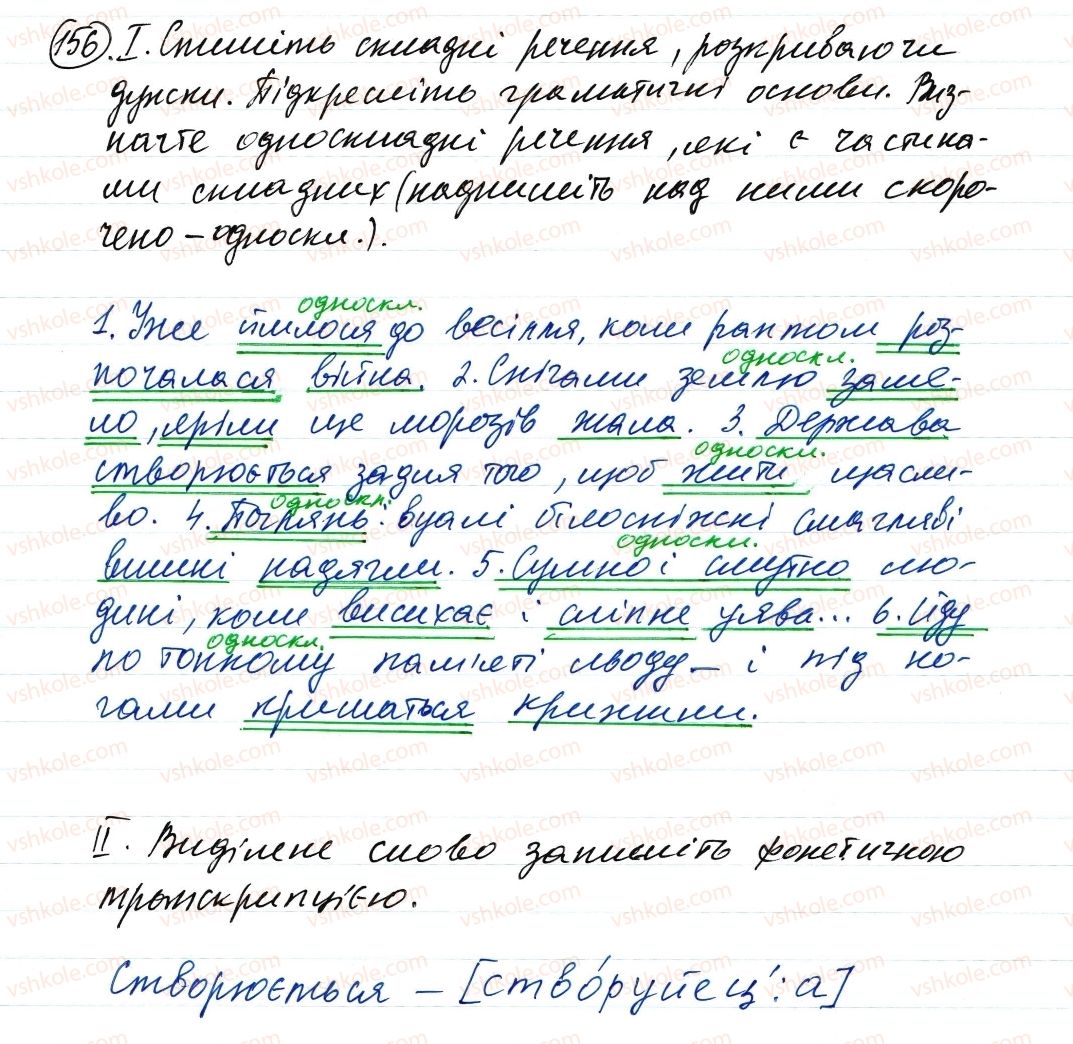 156. І. Спишіть складні речення, розкриваючи
дужки. Підкресліть граматичні основи. Виз-
начте односкладні речення, які є частина-
ми складних (надпишіть над ними скоро-
чено – односкл.).
односкл.
1. Уже йшлося до весілля, коли раптом роз-
односкл.
почалася війна. 2. Снігами землю заме-
ло, яріли ще морозів жала. 3. Держава
односкл.
створюється задля того, щоб жити щасли-
односкл.
во. 4. Поглянь: вуалі білосніжні смагляві
односкл.
вишні надягли. 5. Сумно і смутно лю-
дині, коли висихає і сліпне уява... 6. Іду
односкл.
по тонкому пам'яті льоду – і під но-
гами кришаться крижини.
ІІ. Виділене слово запишіть фонетичною
транскрипцією.
Створюється – [ство́руйец':а]